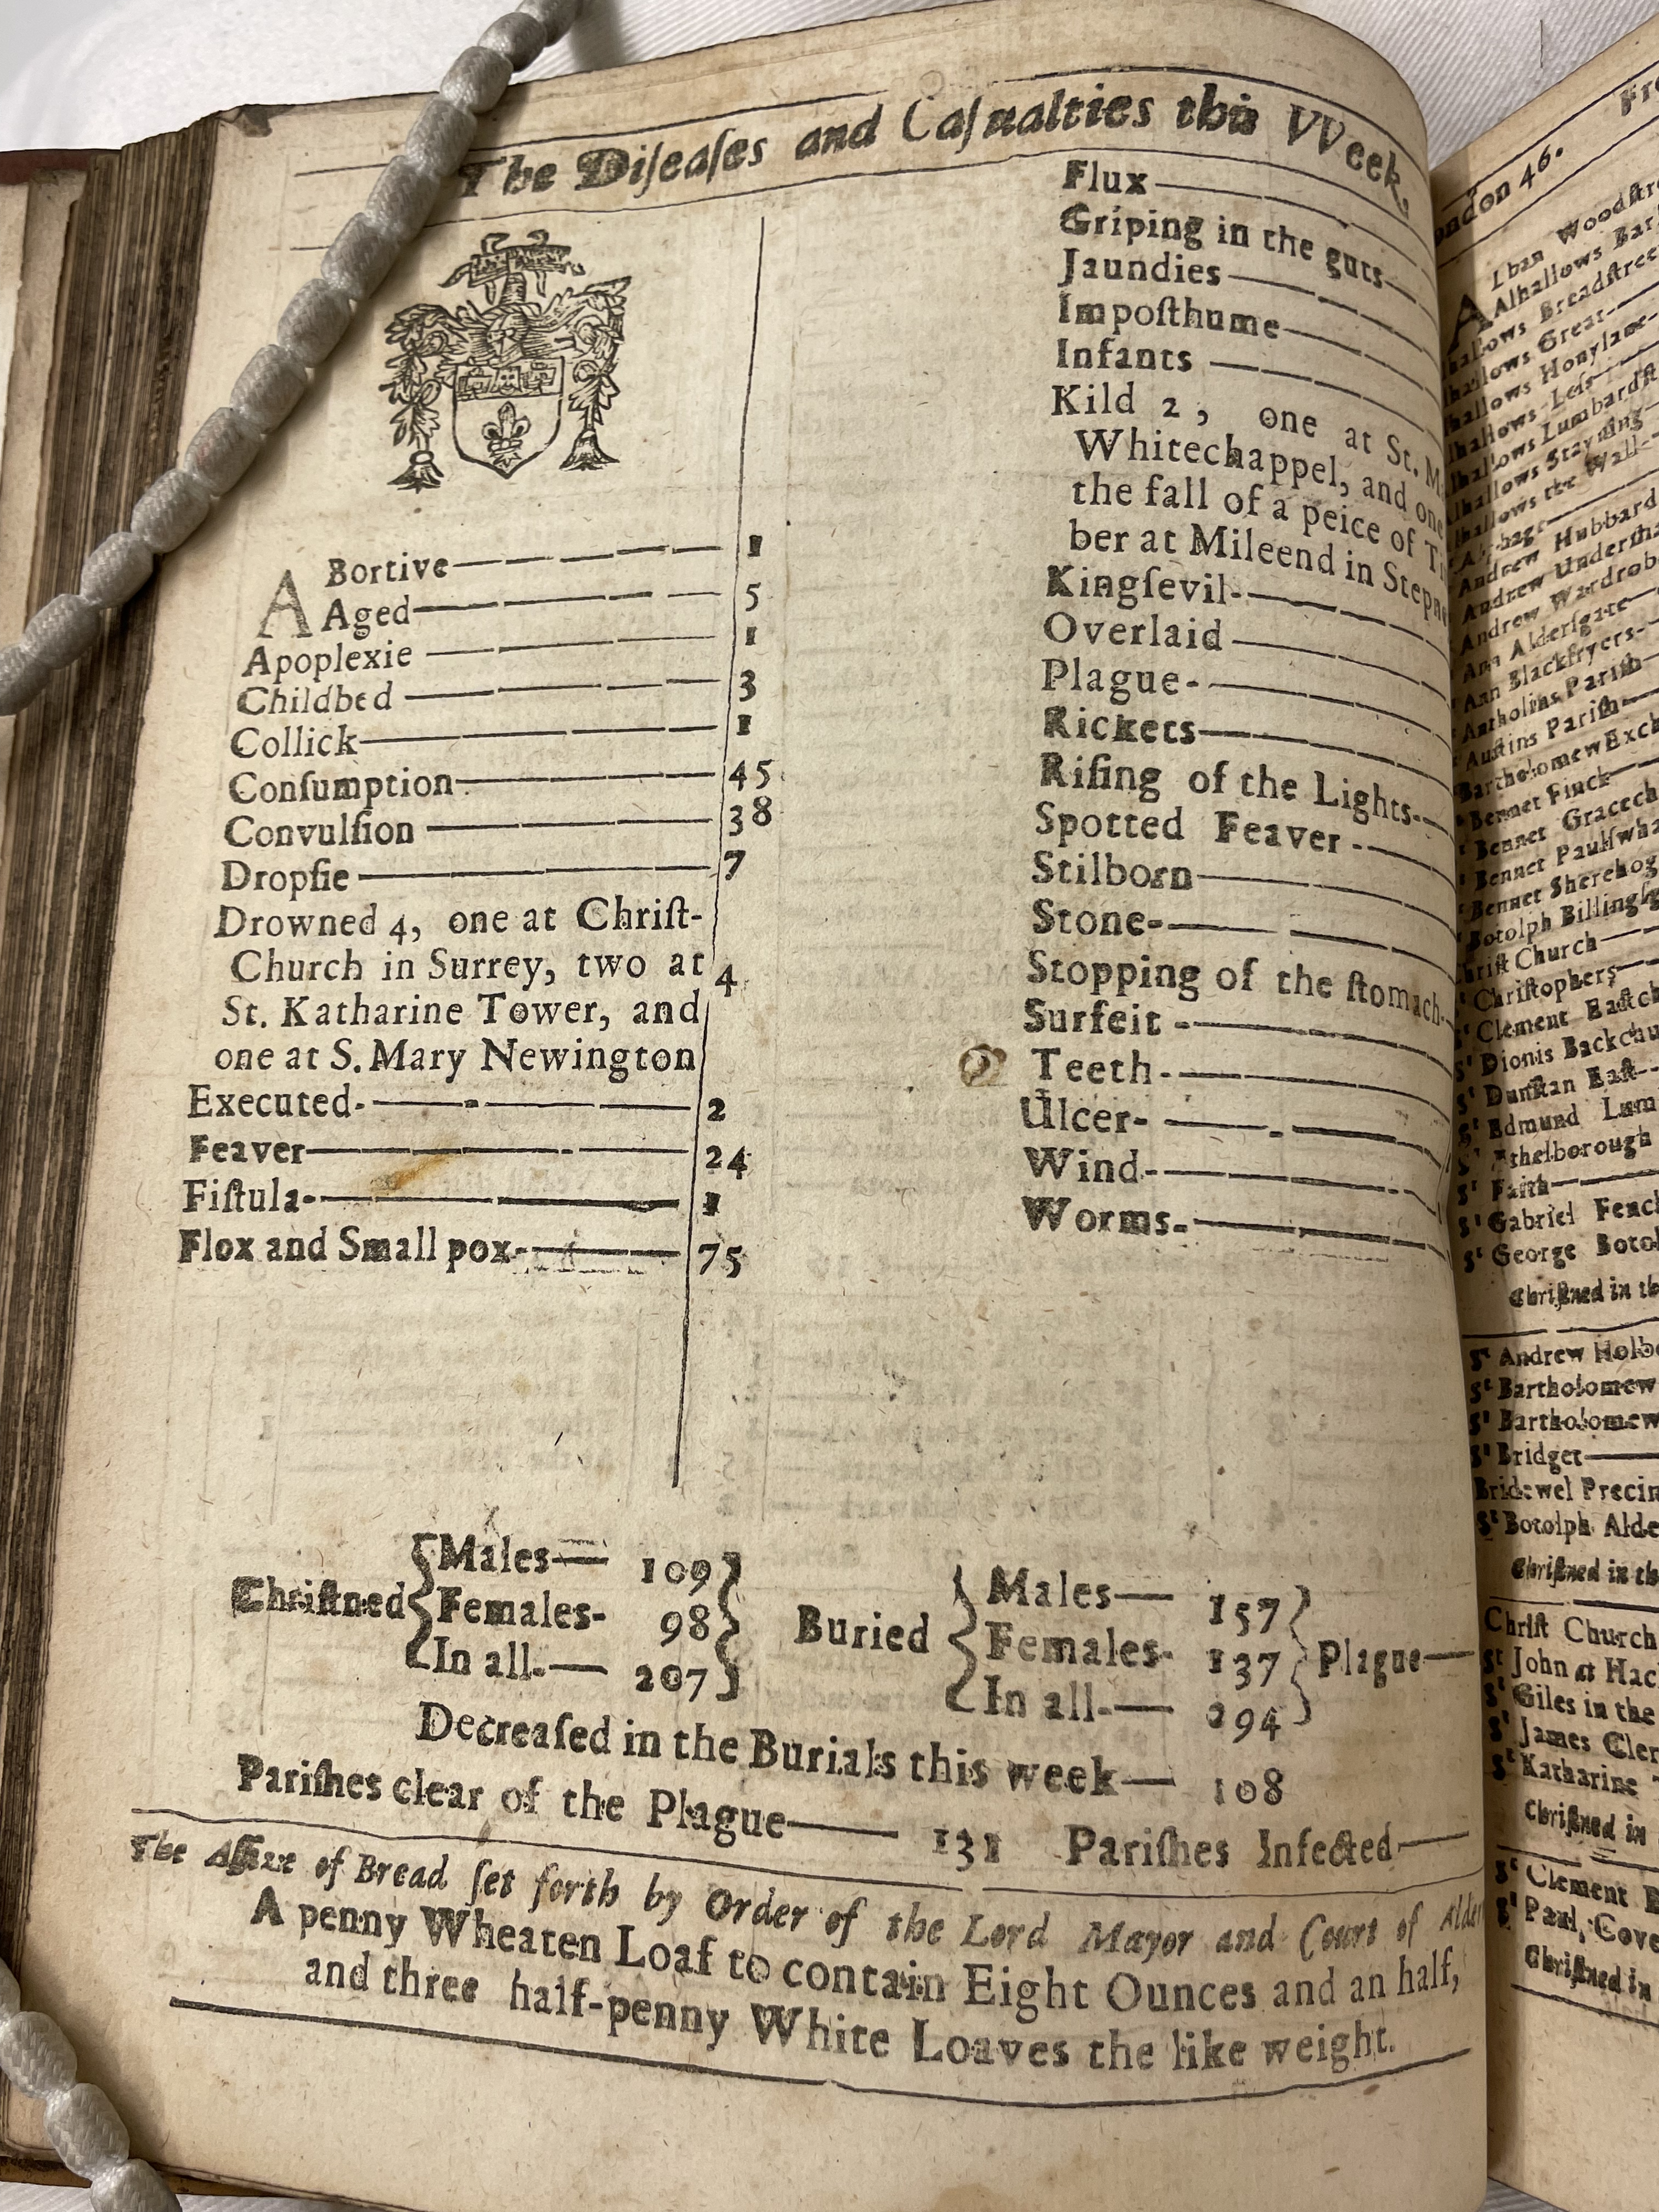 The Diſeaſes and Caſualties this VVeek,
ABortive 1
Aged 5
Apoplexie 1
Childbed 3
Collick 1
Conſumption 45
Convulſion 38
Dropſie 7
Drowned 4, one at Chriſt-
Church in Surrey, two at 4
St. Katharine Tower, and
one at S. Mary Newington
Executed 2
Feaver 24
Fiſtula 1
Flox and Small pox 75
Flux
Griping in the guts
Jaundies
Impoſthume
Infants
Kild 2, one at St. M
Whitechappel, and one
the fall of a peice of
ber at Mileend in Stepn
Kingſevil
Overlaid
Plague
Rickets
Riſing of the Lights
Spotted Feaver
Stilborn
Stone
Stopping of the ſtomach
Surfeit
Teeth
Ulcer
Wind
Worms
Chriſtned { Males 109 Females 98 In all 207 }
Buried { Males 157 Females 137 In all 294 } Plague
Decreaſed in the Burials this week 108
Pariſhes clear of the Plague 131 Pariſhes Infected
The Aſſize of Bread ſet forth by Order of the Lord Mayor and Court of Alder
A penny Wheaten Loaf to contain Eight Ounces and an half,
and three half-penny White Loaves the like weight.
ondon 46. Fro
Alban Woodſtre
Alhallows Bar
hallows Breadſtree
hallows Great
hallows Honylane
hallows Leſs
hallows Lumbardſt
hallows Stayning
hallows the Wall
Andrew Hubbard
Andrew Underſha
Andrew Wardrob
Ann Alderſgate
Ann Blackfryers
Antholins Pariſh
Auſtins Pariſh
Bartholomew Exch
Bennet Finck
Bennet Gracech
Bennet Paulſwha
Bennet Sherehog
Botolph Billingſg
hriſt Church
Chriſtophers
Clement Eaſtch
St Dionis Backchu
St Dunſtan Eaſt
St Edmund Lum
thelborough
St Faith
St Gabriel Fench
St George Botol
Chriſtned in th
St Andrew Holbo
St Bartholomew
St Bartholomew
St Bridget
Bridewel Precin
St Botolph Alde
Chriſtned in th
Chriſt Church
St John at Hac
St Giles in the
St James Cler
St Katharine
Chriſtned in
St Clement
St Paul, Cove
Chriſtned in